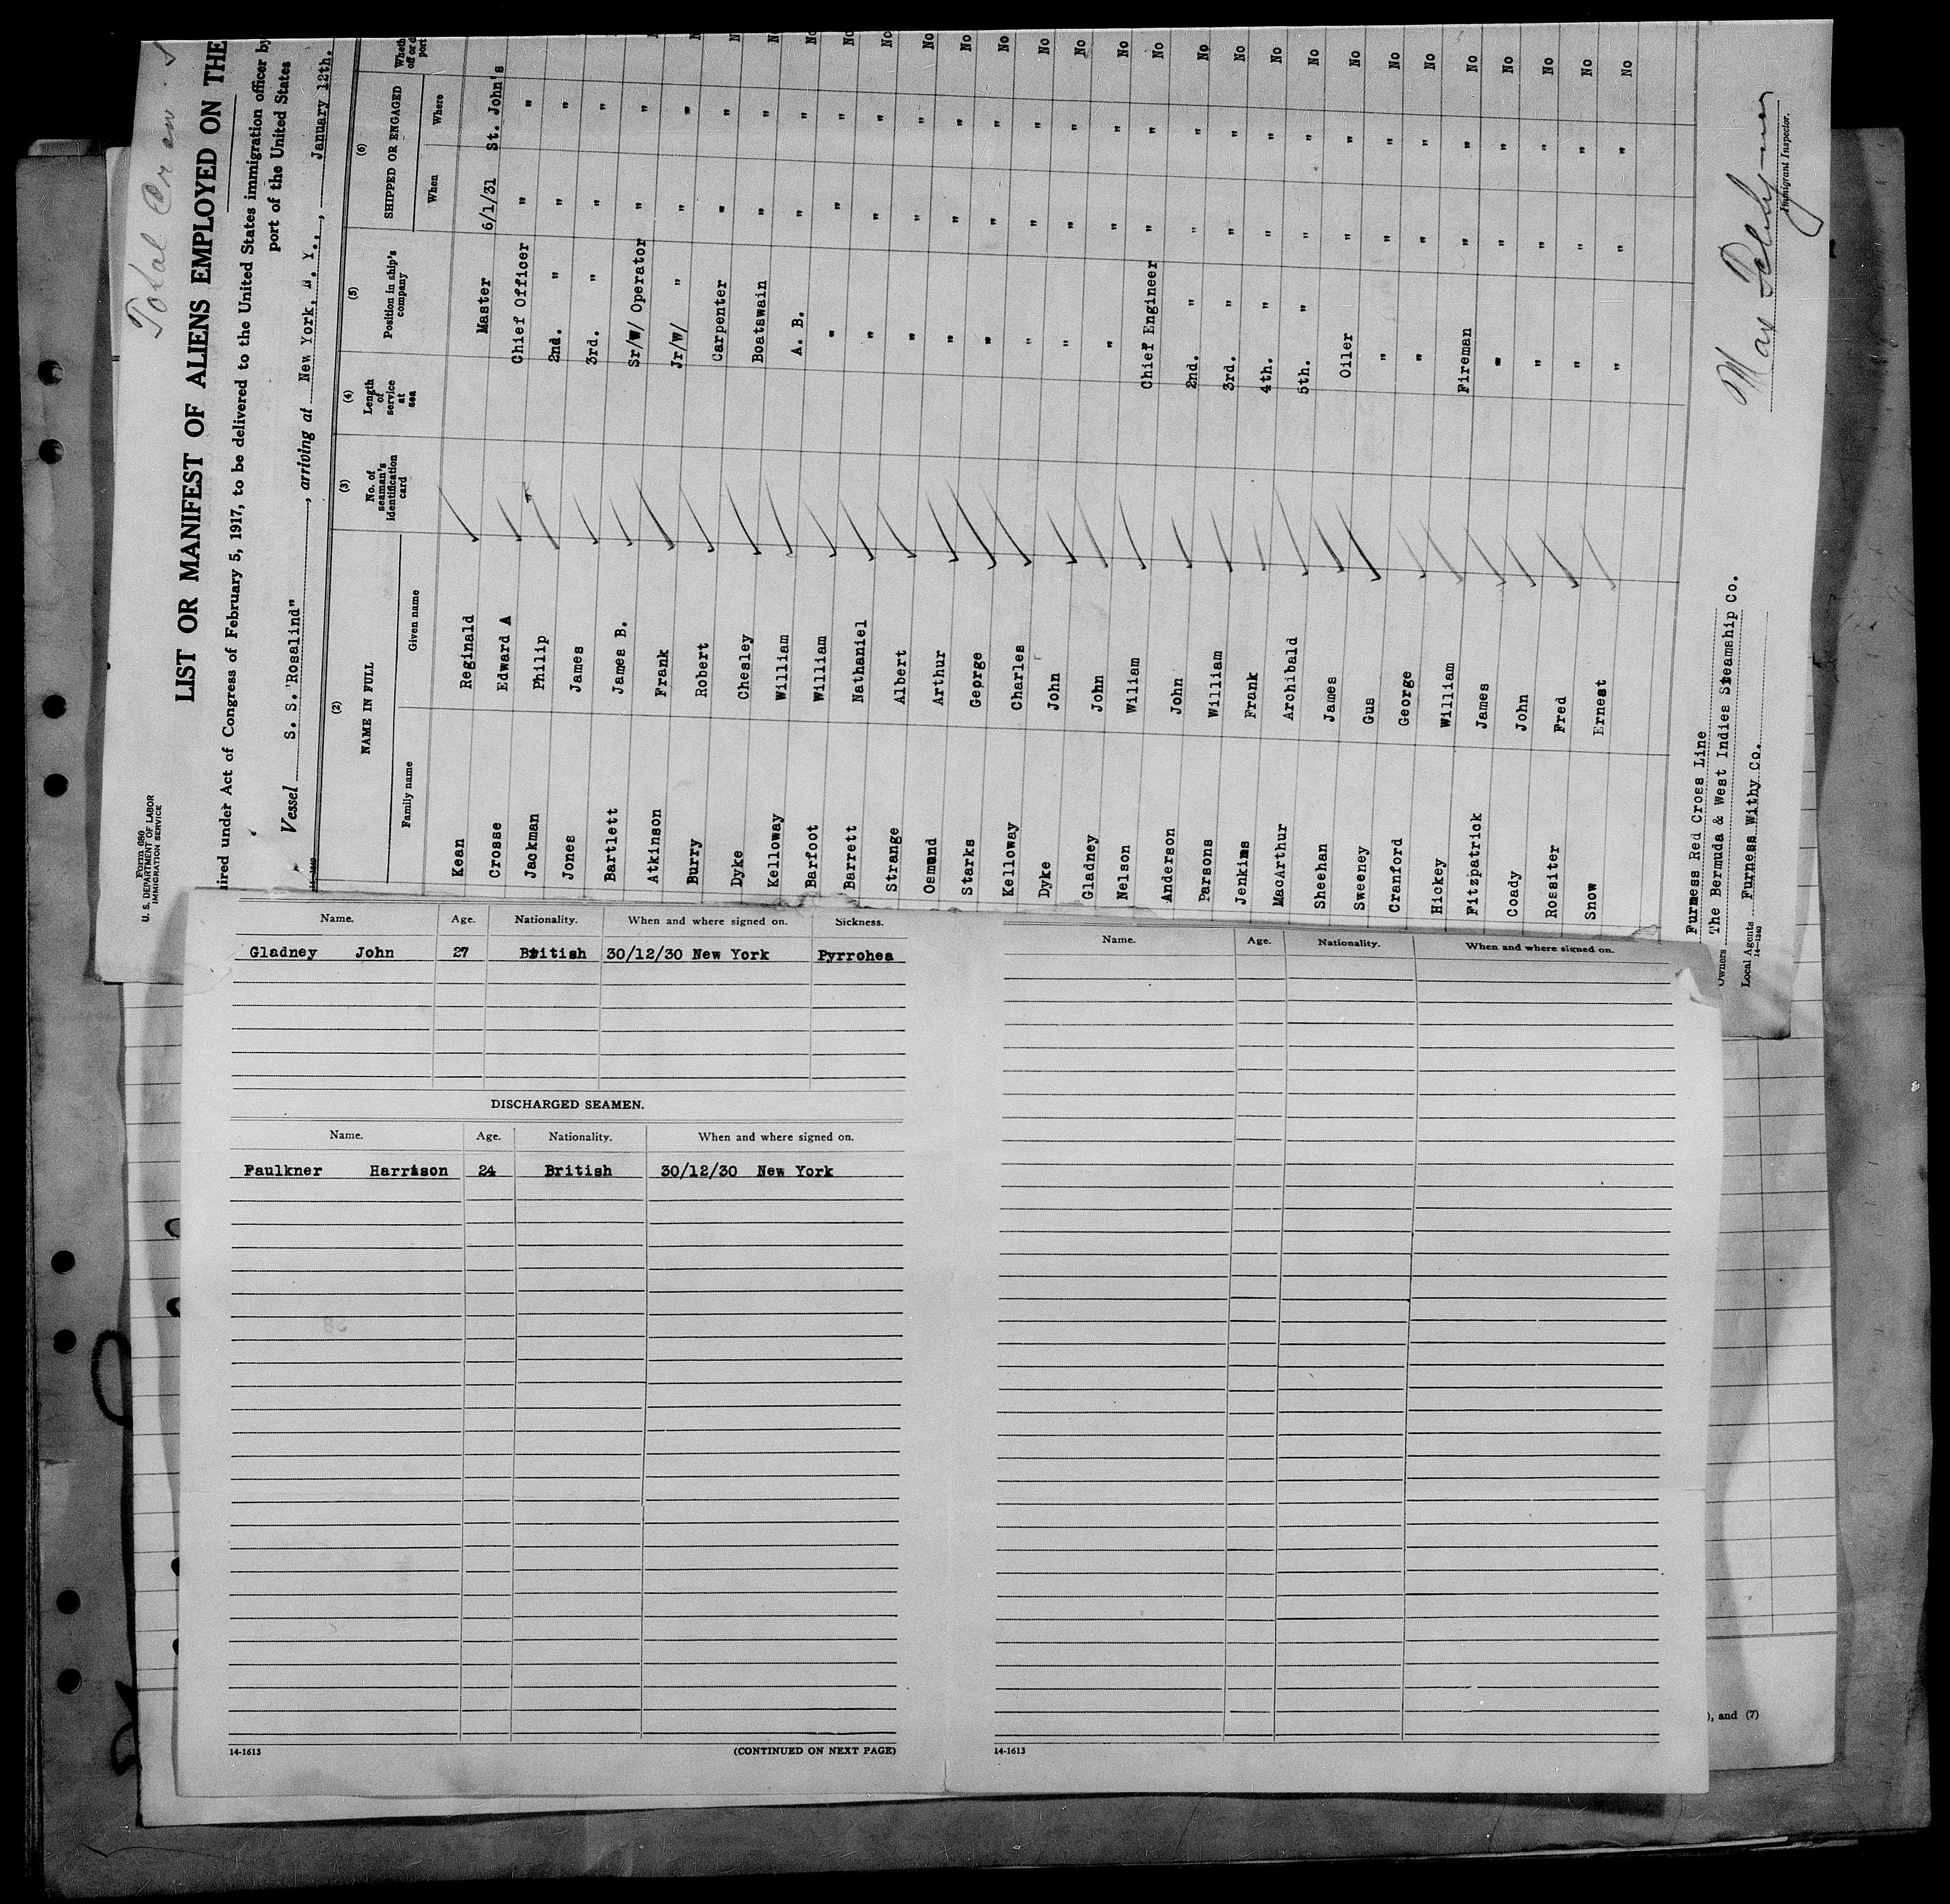 Total Crew
Form 680
U. S. DEPARTMENT OF LABOR
IMMIGRATION SERVICE
LIST OR MANIFEST OF ALIENS EMPLOYED ON THE
ired under Act of Congress of February 5, 1917, to be delivered to the United States immigration officer by
port of the United States
Vessel S. S. "Rosalind", arriving at New York, N. Y., , January 12th.
(2) (3) (4) (5) (6)
NAME IN FULL No. of seaman's identification card Length of service at sea Position in ship's company SHIPPED OR ENGAGED Wheth
Family name Given name When Where
Kean Reginald Master 6/1/31 St. John's
Crose Edward A Chief Officer " " No
Jackman Philip 2nd. " " " No
Jones James 3rd. " " " No
Bartlett James B. Sr/W/ Operator " "
Atkinson Frank Jr/W/ " " "
Burry Robert Carpenter " "
Dyke Chesley Boatswain " " No
Kelloway William A. B. " " No
Barfoot William " " " No
Barrett Nathaniel " " " No
Strange Albert " " " No
Osmund Arthur " " " No
Starks George " " " No
Kelloway Charles " " " No
Dyke John " " " No
Gladney John " " " No
Nelson William Chief Engineer " " No
Anderson John 2nd. " " " No
Parsons William 3rd. " " " No
Jenkins Frank 4th. " " " No
MacArthur Archibald 5th. " " " No
Sheehan James Oiler " " No
Sweeney Gus " " " No
Cranford George " " " No
Hickey William Fireman " " No
Fitzpatrick James " " " No
Coady John " " " No
Rossiter Fred " " " No
Snow Ernest " " " No
Furness Red Cross Line
Owners The Bermuda & West Indies Steamship Co.
Local Agents Furness Withy Co.
14-1240
Immigrant Inspector.
Name. Age. Nationality. When and where signed on. Sickness.
Gladney John 27 British 30/12/30 New York Pyrrohea
DISCHARGED SEAMEN.
Name. Age. Nationality. When and where signed on.
Faulkner Harrison 24 British 30/12/30 New York
14-1613 (CONTINUED ON NEXT PAGE)
Name. Age. Nationality. When and where signed on.
14-1613
), and (7)